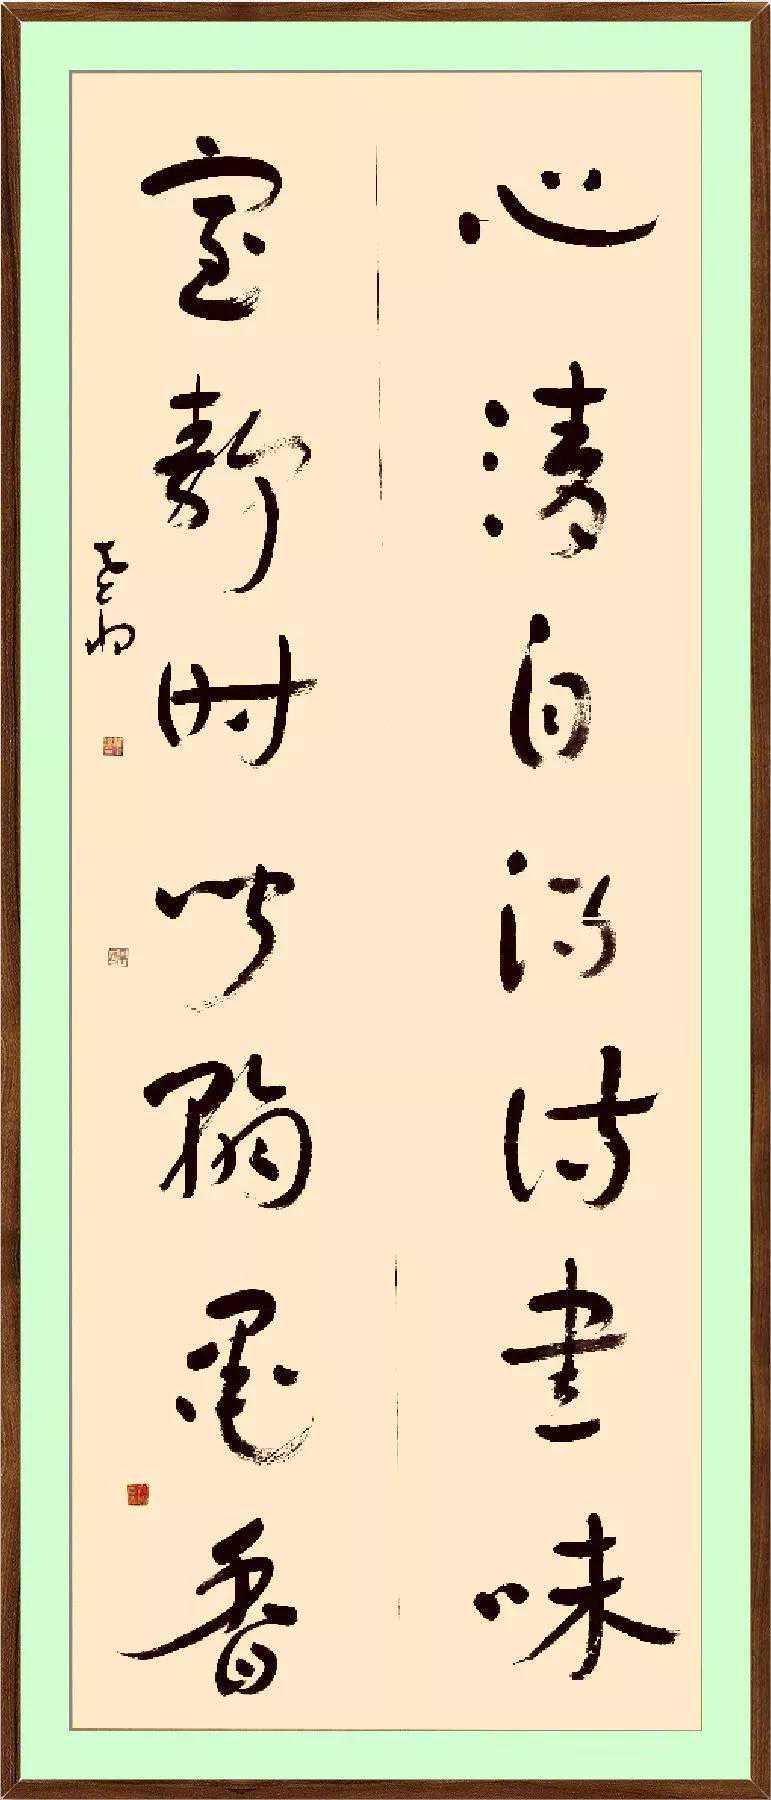 心清自得诗书味
室静时闻翰墨香